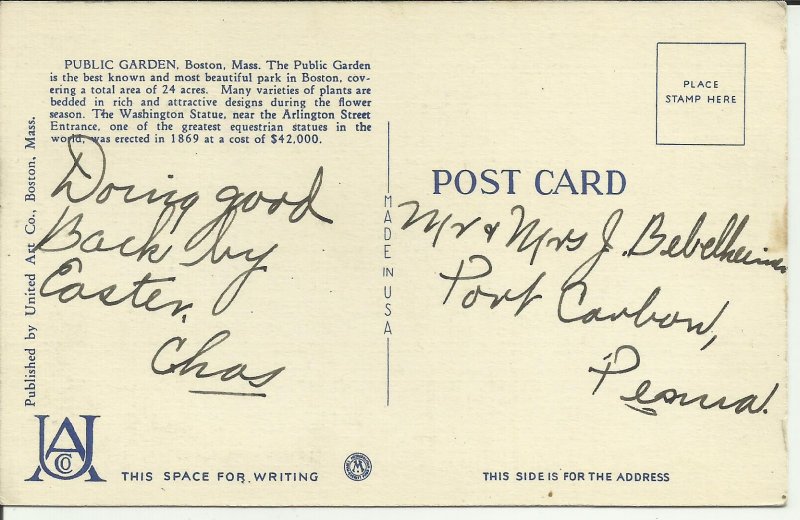 PUBLIC GARDEN, Boston, Mass. The Public Garden
is the best known and most beautiful park in Boston, cov-
ering a total area of 24 acres. Many varieties of plants are
bedded in rich and attractive designs during the flower
season. The Washington Statue, near the Arlington Street
Entrance, one of the greatest equestrian statues in the
world, was erected in 1869 at a cost of $42,000.
Doing good
Back by
Easter.
Chas
Published by United Art Co., Boston, Mass.
UACO
THIS SPACE FOR WRITING
MADE IN USA
PLACE
STAMP HERE
POST CARD
Mr & Mrs J. Bebelheimer
Port Carbon,
Penna.
THIS SIDE IS FOR THE ADDRESS